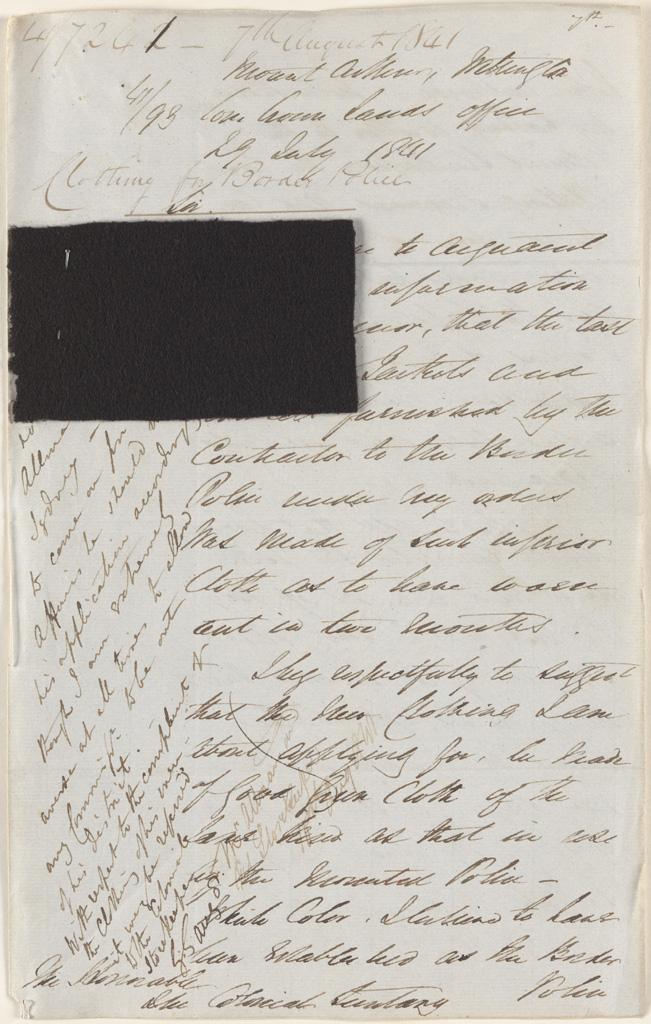 41/7242 - 7th August 1841
Mount Arthur, Wellington
41/93 Com Crown Lands office
29 July 1841
Clothing for Border Police
Sir
to acquaint
information
that the last
Jackets and
furnished by the
Contractor to the Border
Police under my orders
Was made of such inferior
Cloth as to have worn
out in two months.
I beg respectfully to suggest
that the New Clothing I am
about applying for, be made
of good Green Cloth of the
same kind as that in use
by the Mounted Police -
Which Color. I believe to have
been established as the Border
Police
The Honorable
The Colonial Secretary
Sydney -
to come on for
affairs he should
his application accordingly
though I am extremely
averse at all times to allow
any Commissr. to be out
of his District.
With respect to the complaint of
the Clothing of his men
it may be referred
to the Colonial
Storekeeper